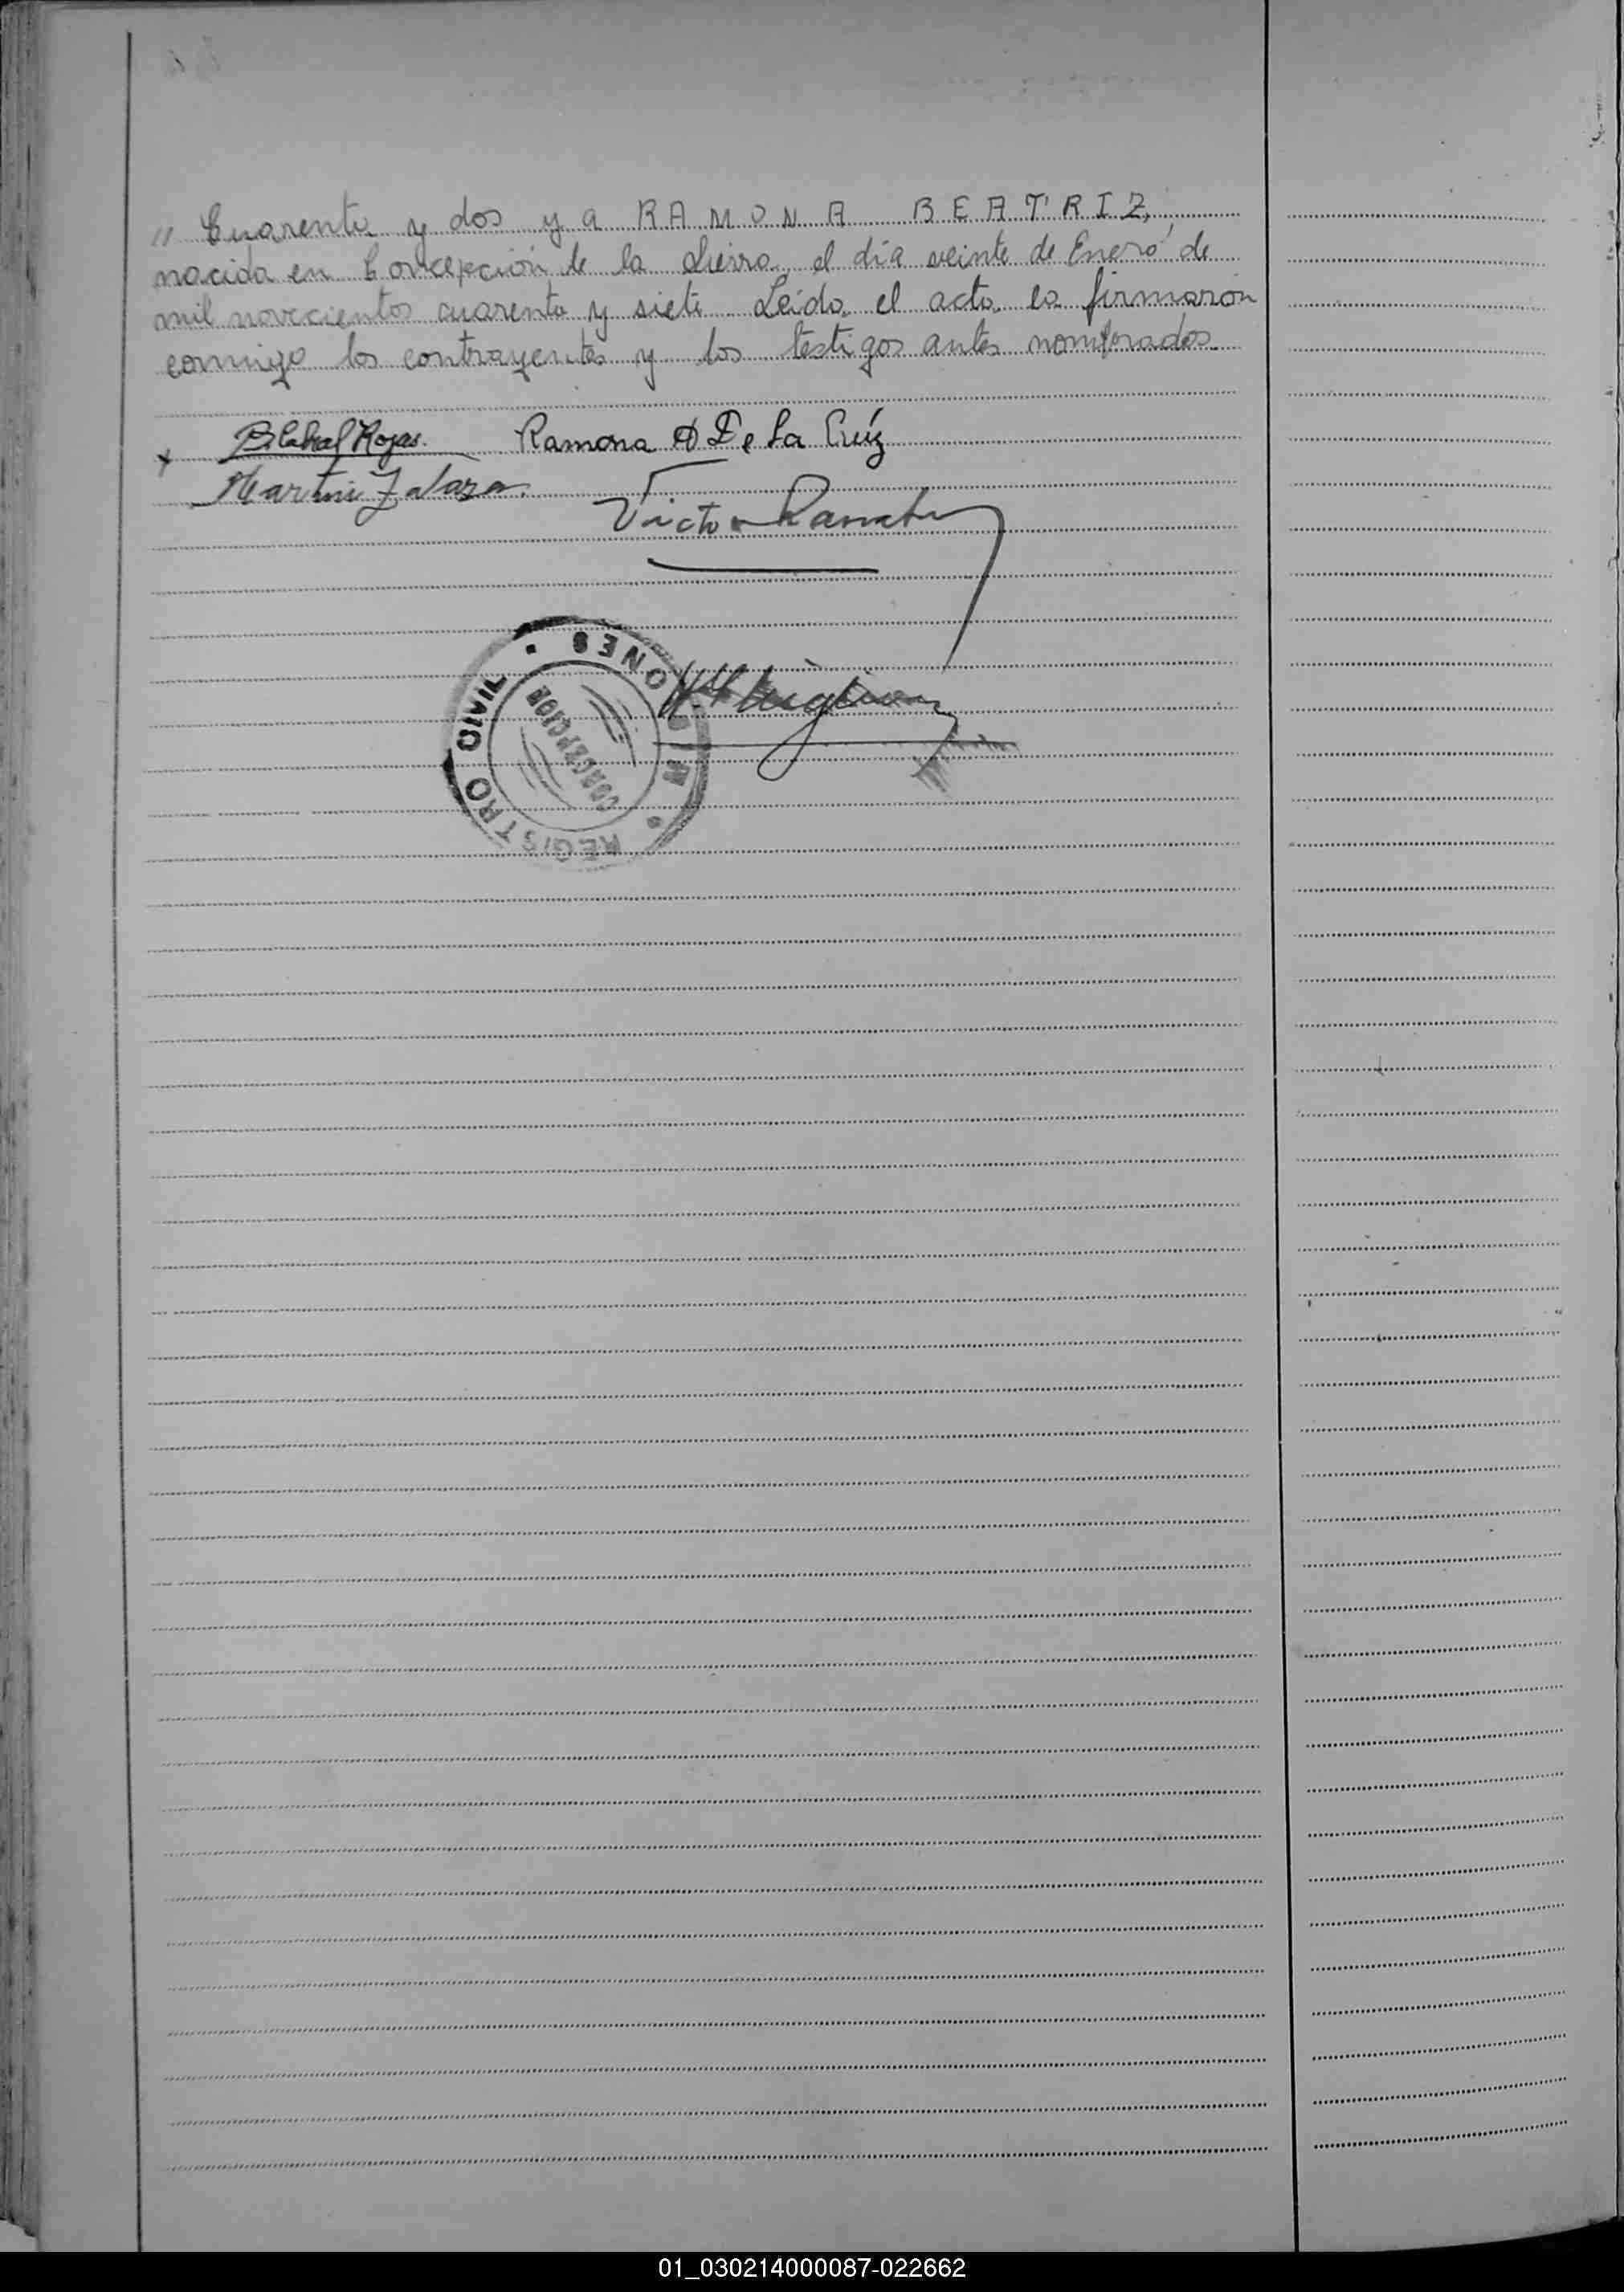 " Cuarenta y dos y a RAMONA BEATRIZ,
nacida en Concepción de la Sierra el día veinte de Enero de
mil novecientos cuarenta y siete. Leída el acta la firmaron
conmigo los contrayentes y los testigos antes nombrados.
x B Cabral Rojas. Ramona A De La Crúz
Martin Zalazar.
Victor
REGISTRO CIVIL • MISIONES •
CONCEPCION
01_030214000087-022662